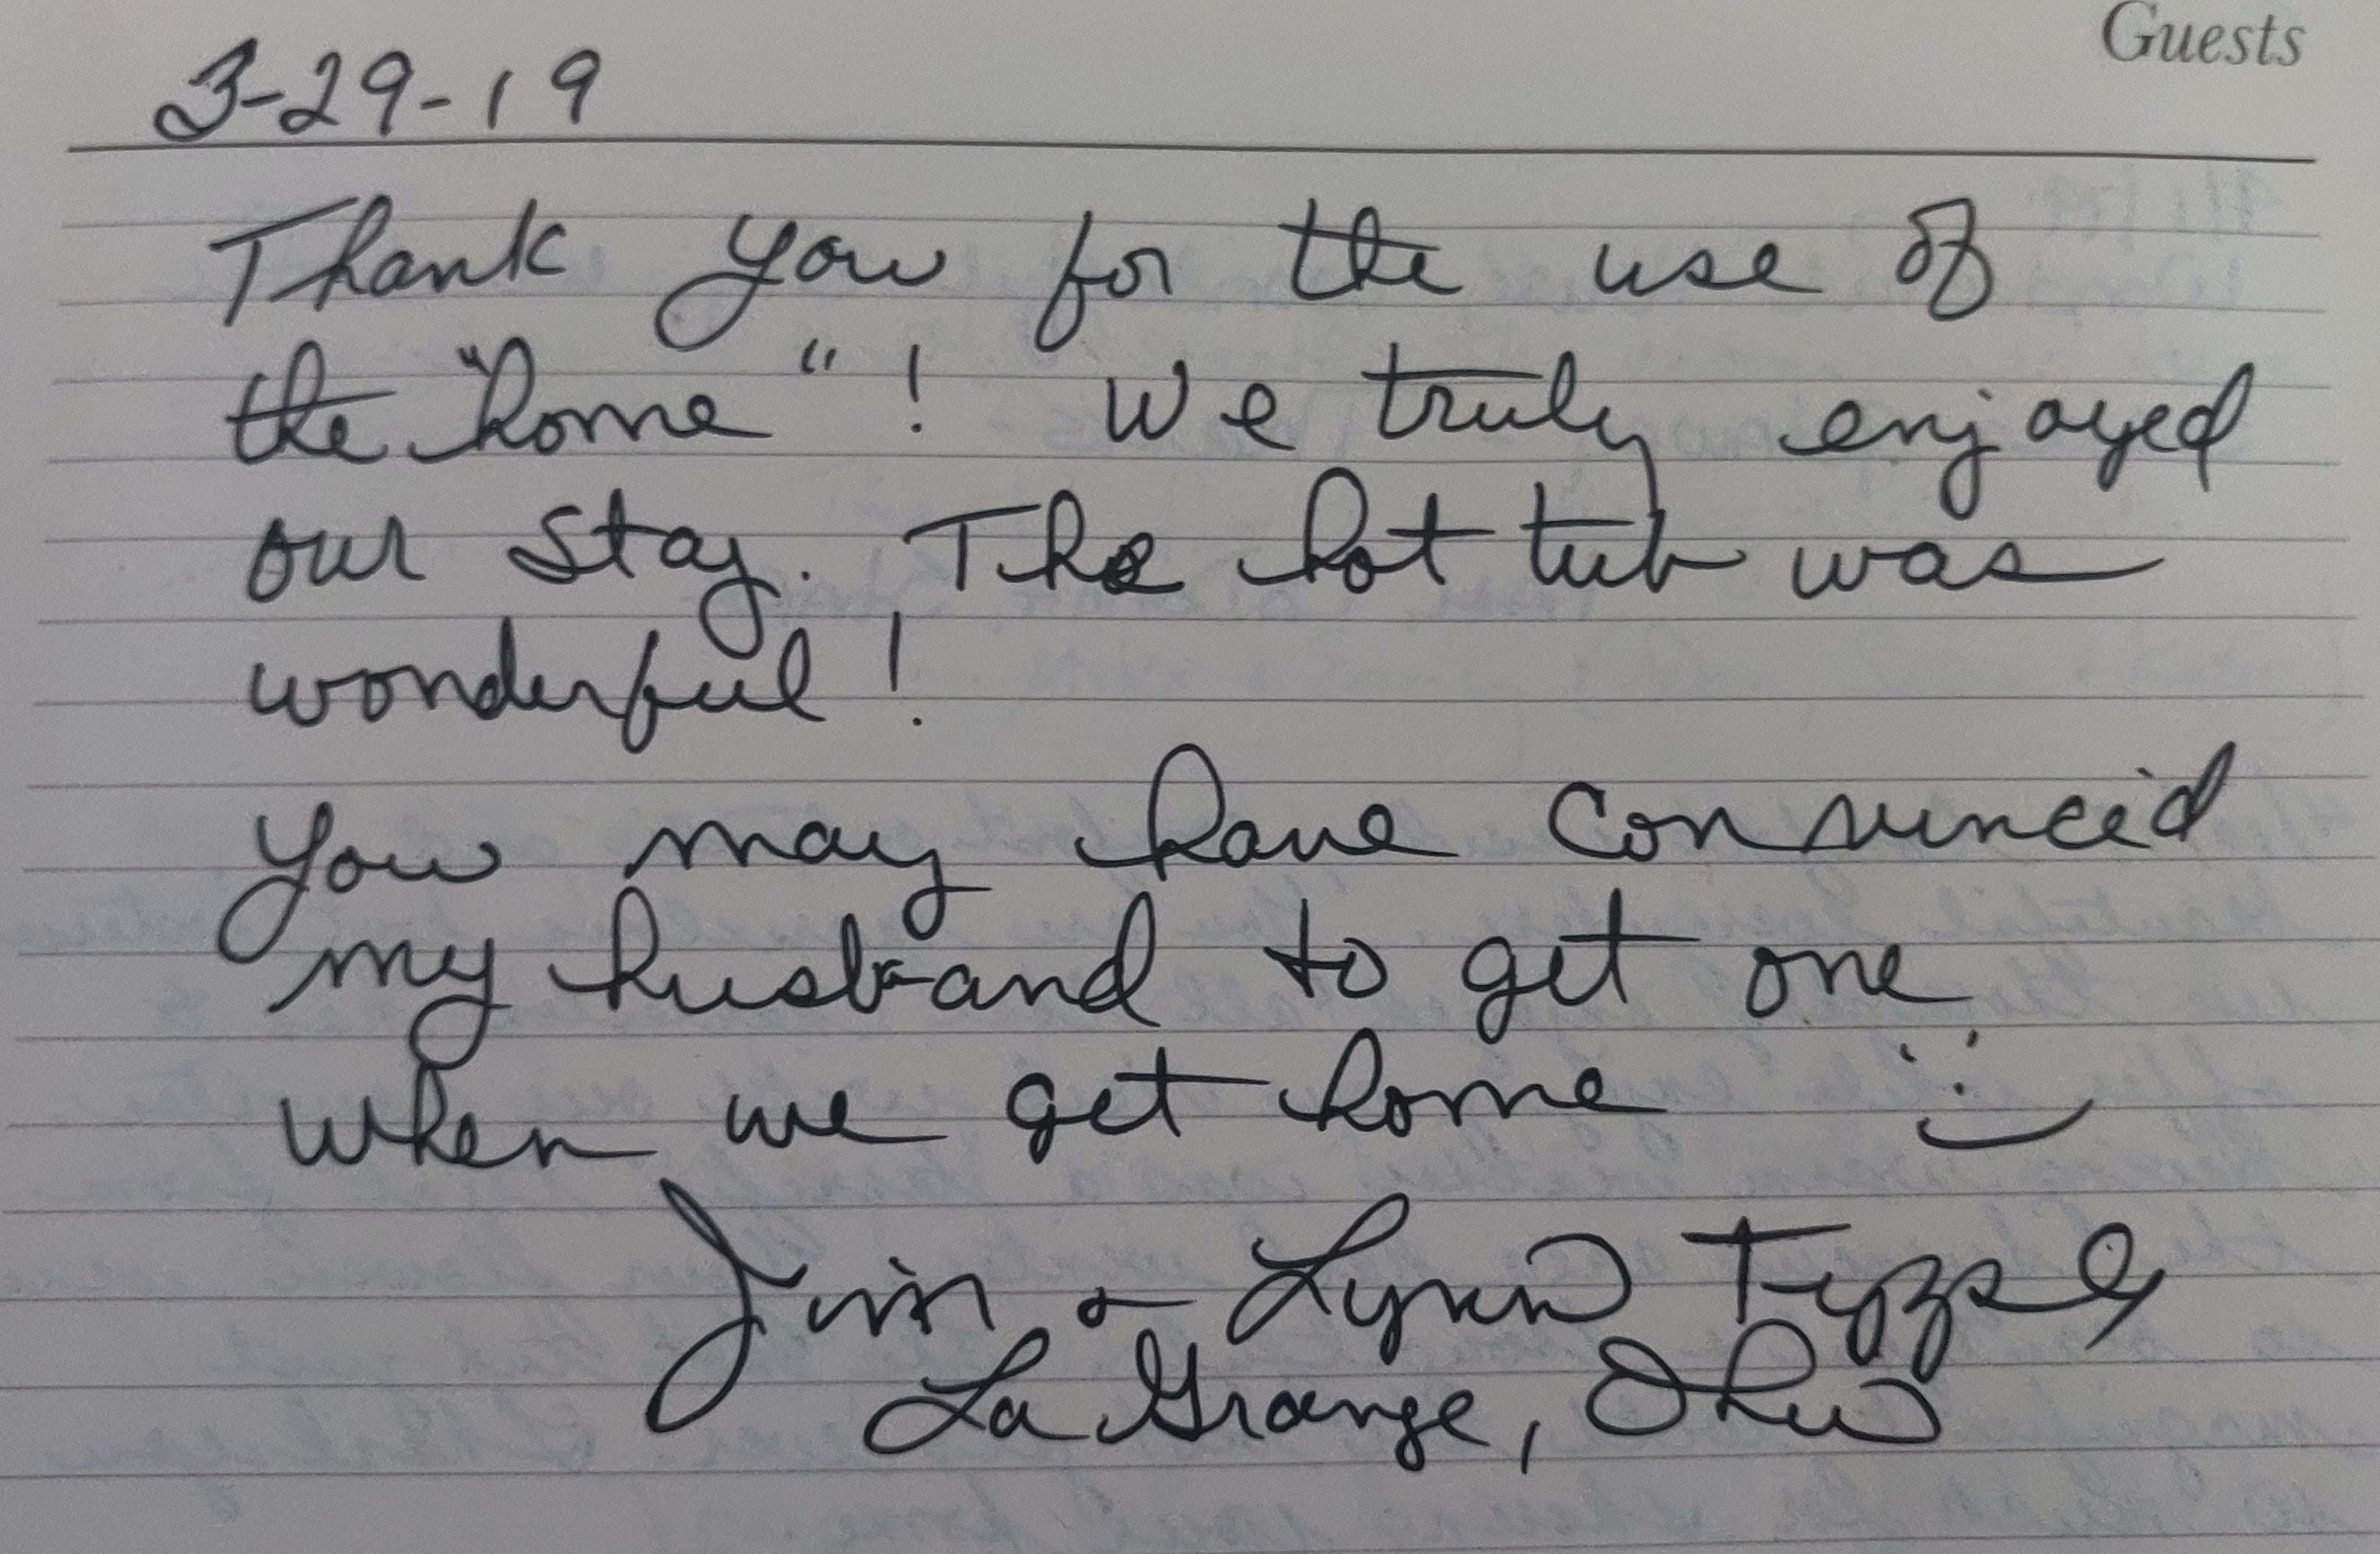 Guests
3-29-19
Thank you for the use of
the "home"! We truly enjoyed
our stay. The hot tub was
wonderful!
You may have convinced
my husband to get one
when we get home
Jim & Lynn
La Grange, Ohio